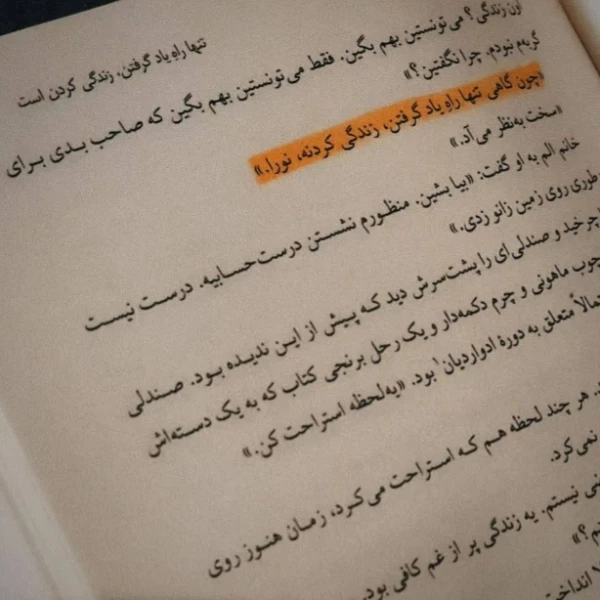 تنها راهِ یاد گرفتن، زندگی کردن است
اون زندگی؟ می‌تونستین بهم بگین. فقط می‌تونستین بهم بگین که صاحب بدی برای
گربه‌م نبودم. چرا نگفتین؟»
«چون گاهی تنها راهِ یاد گرفتن، زندگی کردنه، نورا.»
«سخت به‌نظر می‌آد.»
خانم الم به او گفت: «بیا بشین. منظورم نشستن درست‌حسابیه. درست نیست
طوری روی زمین زانو زدی.»
چرخید و صندلی‌ای را پشت‌سرش دید که پیش از این ندیده بود. صندلی
چوب ماهونی و چرم دکمه‌دار و یک رحل برنجی کتاب که به یک دسته‌اش
متعلق به دورهٔ ادواردیان۱ بود. «یه‌لحظه استراحت کن.»
هر چند لحظه هم که استراحت می‌کرد، زمان هنوز روی
نمی‌کرد.
نیستم. یه زندگی پر از غم کافی بود.